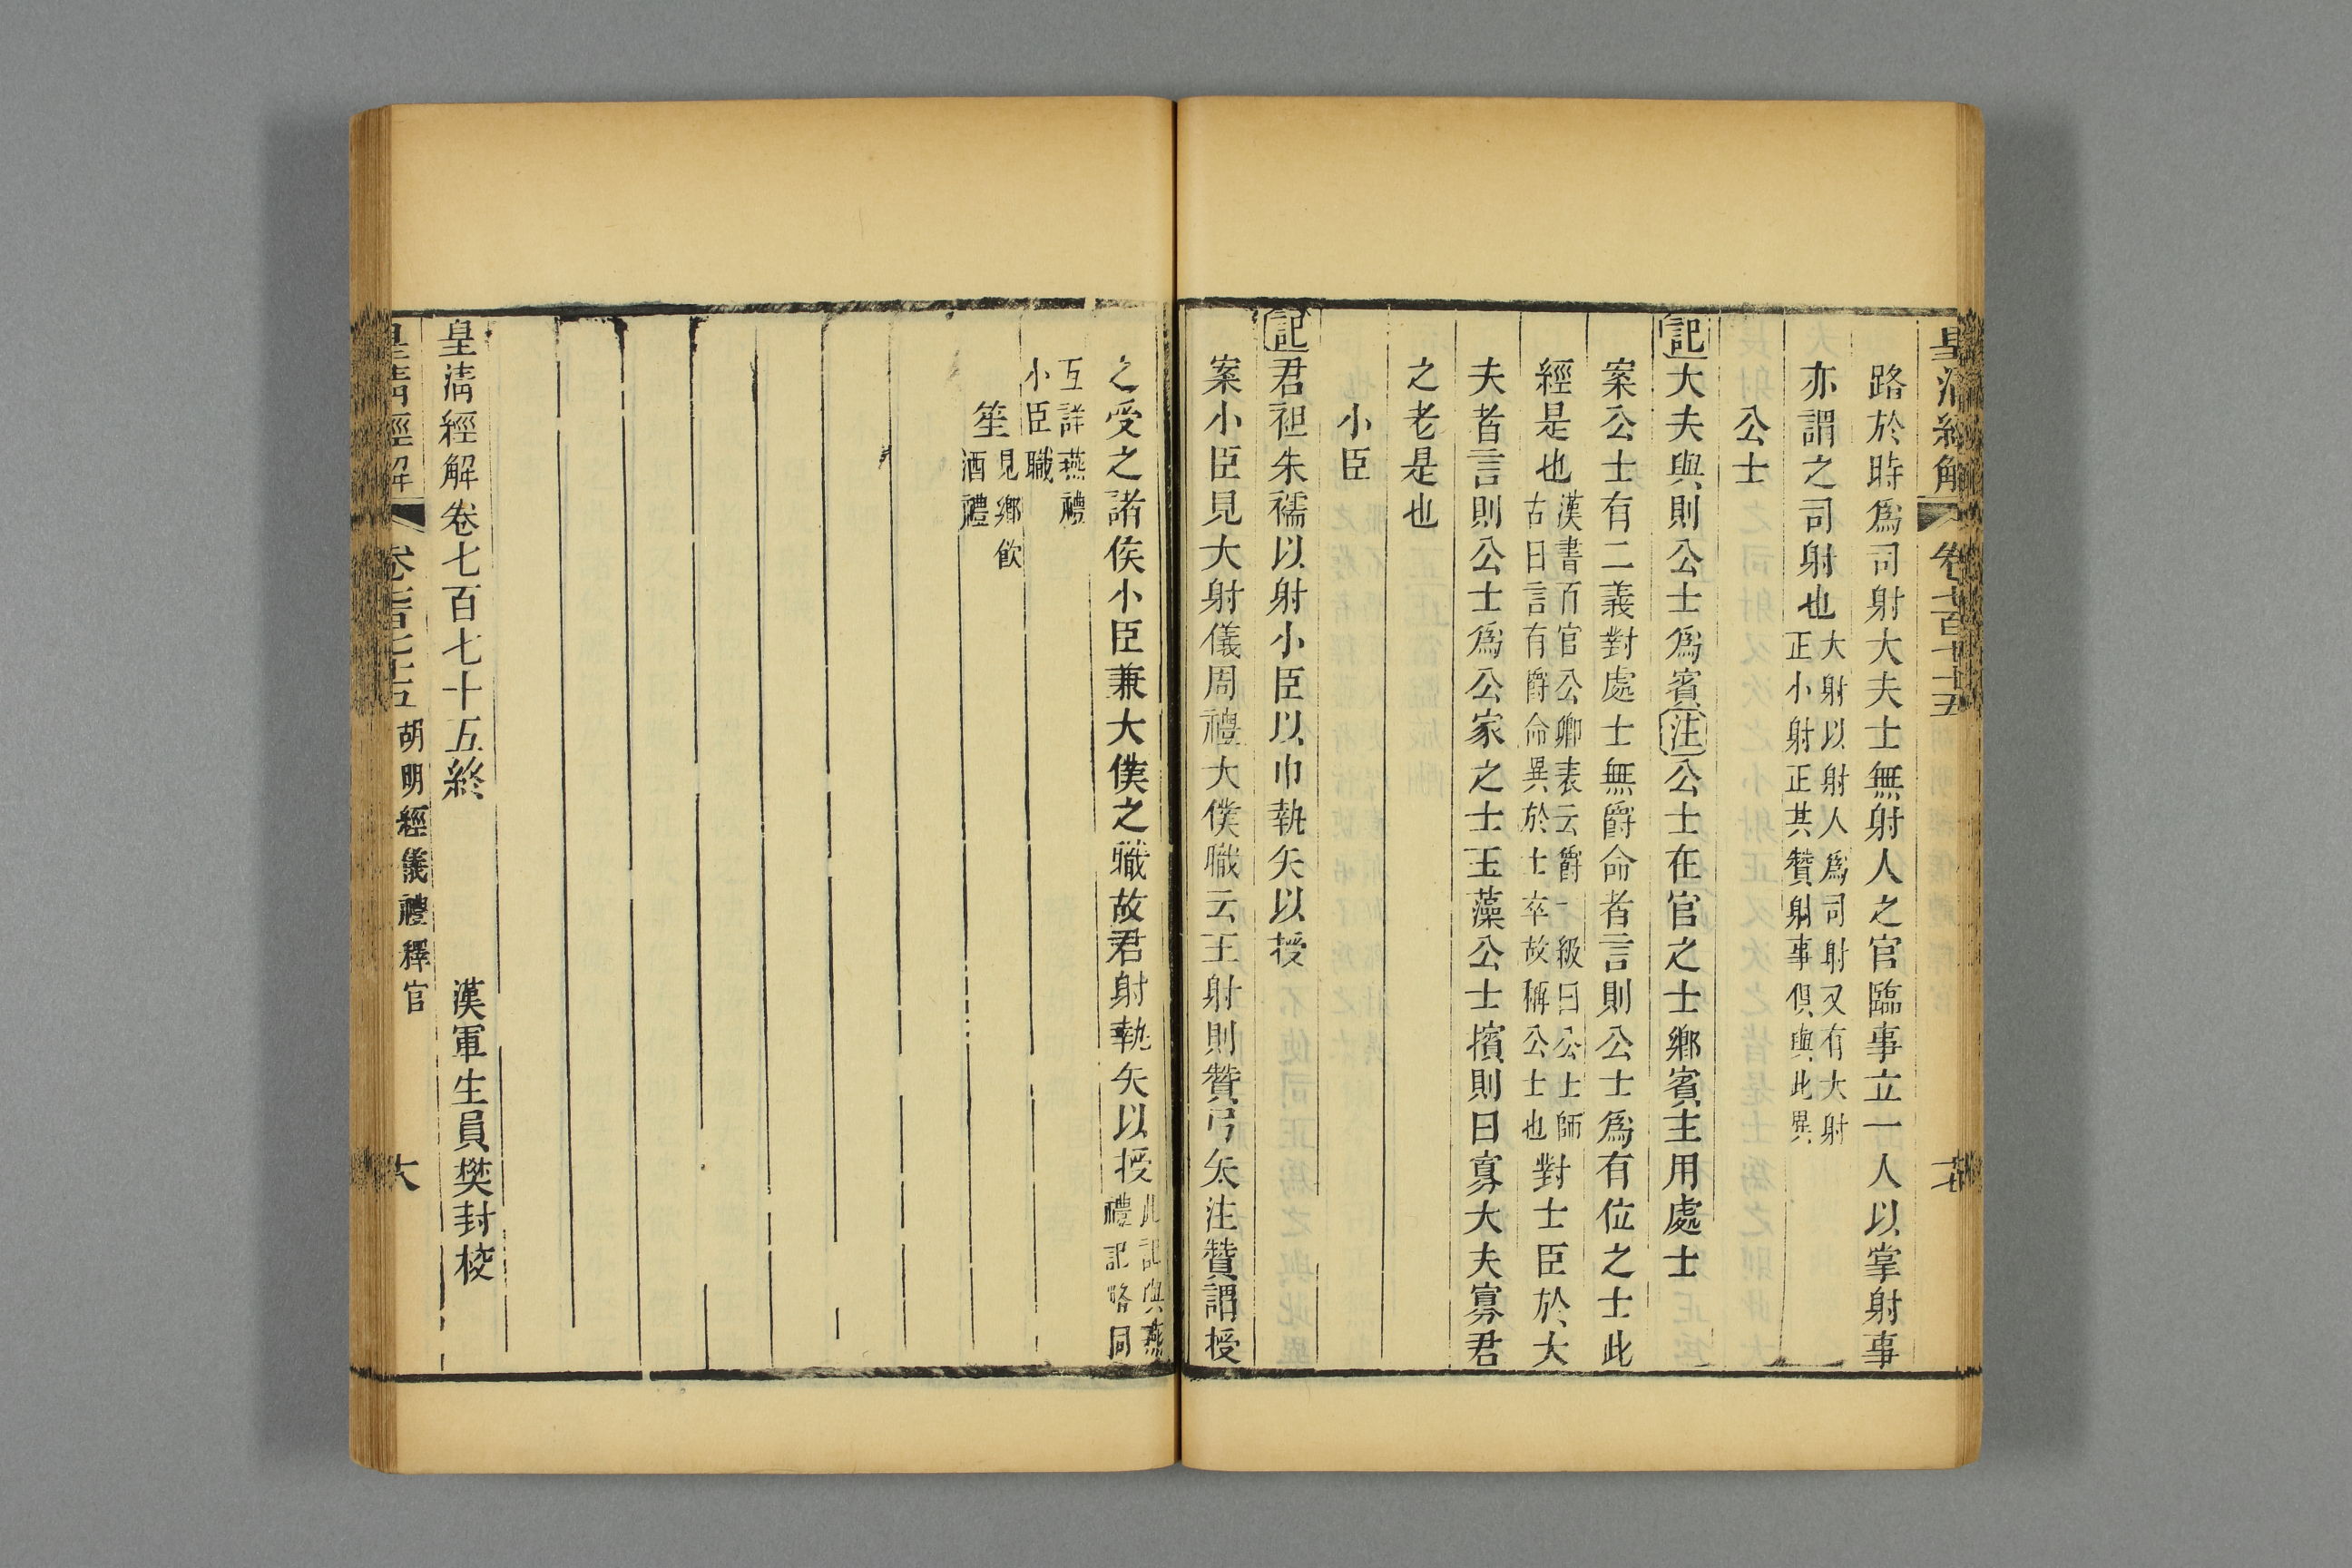 皇清經解 卷七百七十五
路於時爲司射大夫士無射人之官臨事立一人以掌射事
亦謂之司射也大射以射人爲司射又有大射
正小射正其贊射事俱與此異
公士
記大夫與則公士爲賓注公士在官之士鄉賓主用處士
案公士有二義對處士無爵命者言則公士爲有位之士此
經是也漢書百官公卿表云爵一級曰公士師
古曰言有爵命異於士卒故稱公士也對士臣於大
夫者言則公士爲公家之士玉藻公士擯則曰寡大夫寡君
之老是也
小臣
記君袒朱襦以射小臣以巾執矢以授
案小臣見大射儀周禮大僕職云王射則贊弓矢注贊謂授
之受之諸侯小臣兼大僕之職故君射執矢以授此記與燕
禮記略同
互詳燕禮
小臣職
笙見鄉飲
酒禮
皇清經解卷七百七十五終 漢軍生員樊封校
皇清經解 卷七百七十五 胡明經儀禮釋官 大